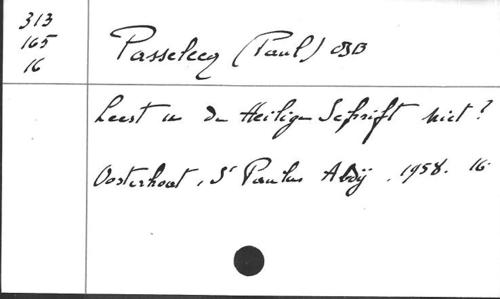 313
165
16
Passelecq (Paul) OSB
Leest u de Heilige Schrift niet?
Oosterhout, St Paulus Abdij, 1958. 16